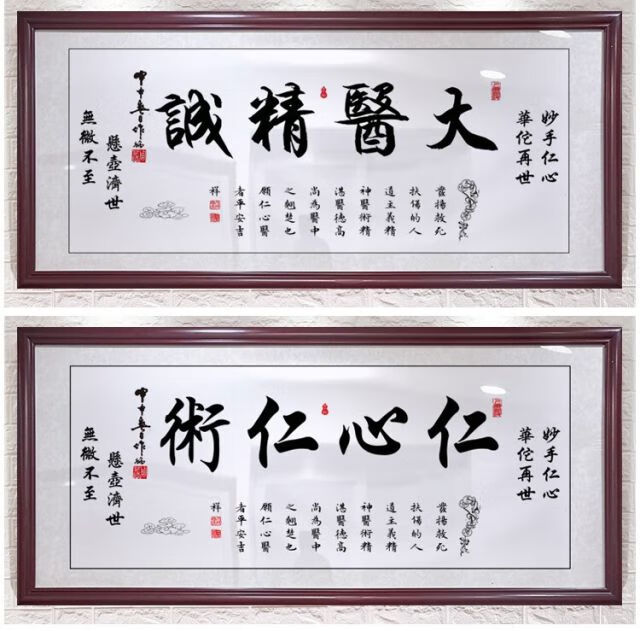 妙手仁心
華佗再世
大醫精誠
發揚救死
扶傷的人
道主義精
神醫術精
湛醫德高
尚為醫中
之翹楚也
願仁心醫
者平安吉
祥
懸壺濟世
無微不至
妙手仁心
華佗再世
仁心仁術
發揚救死
扶傷的人
道主義精
神醫術精
湛醫德高
尚為醫中
之翹楚也
願仁心醫
者平安吉
祥
懸壺濟世
無微不至